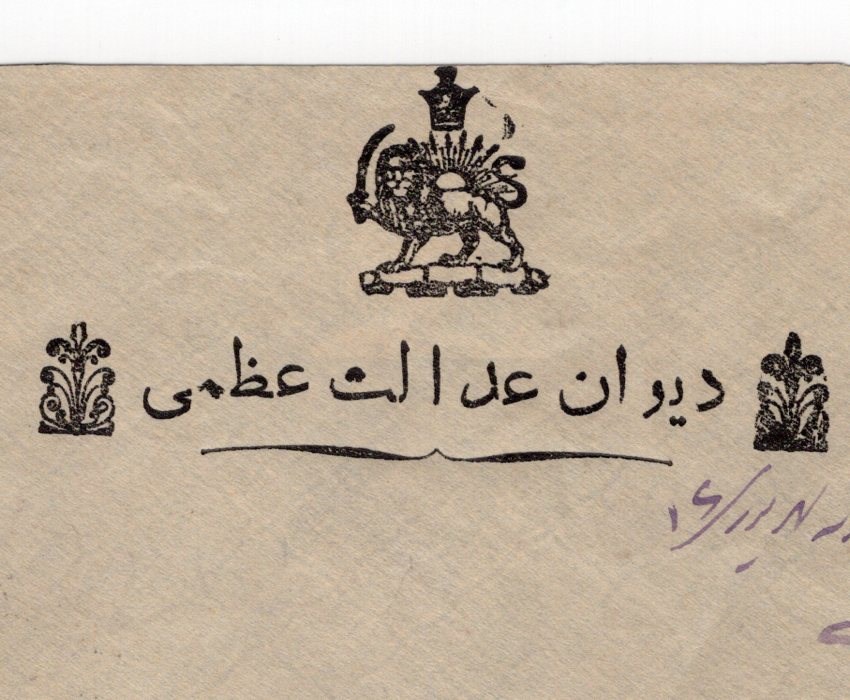 دیوان عدالت عظمی